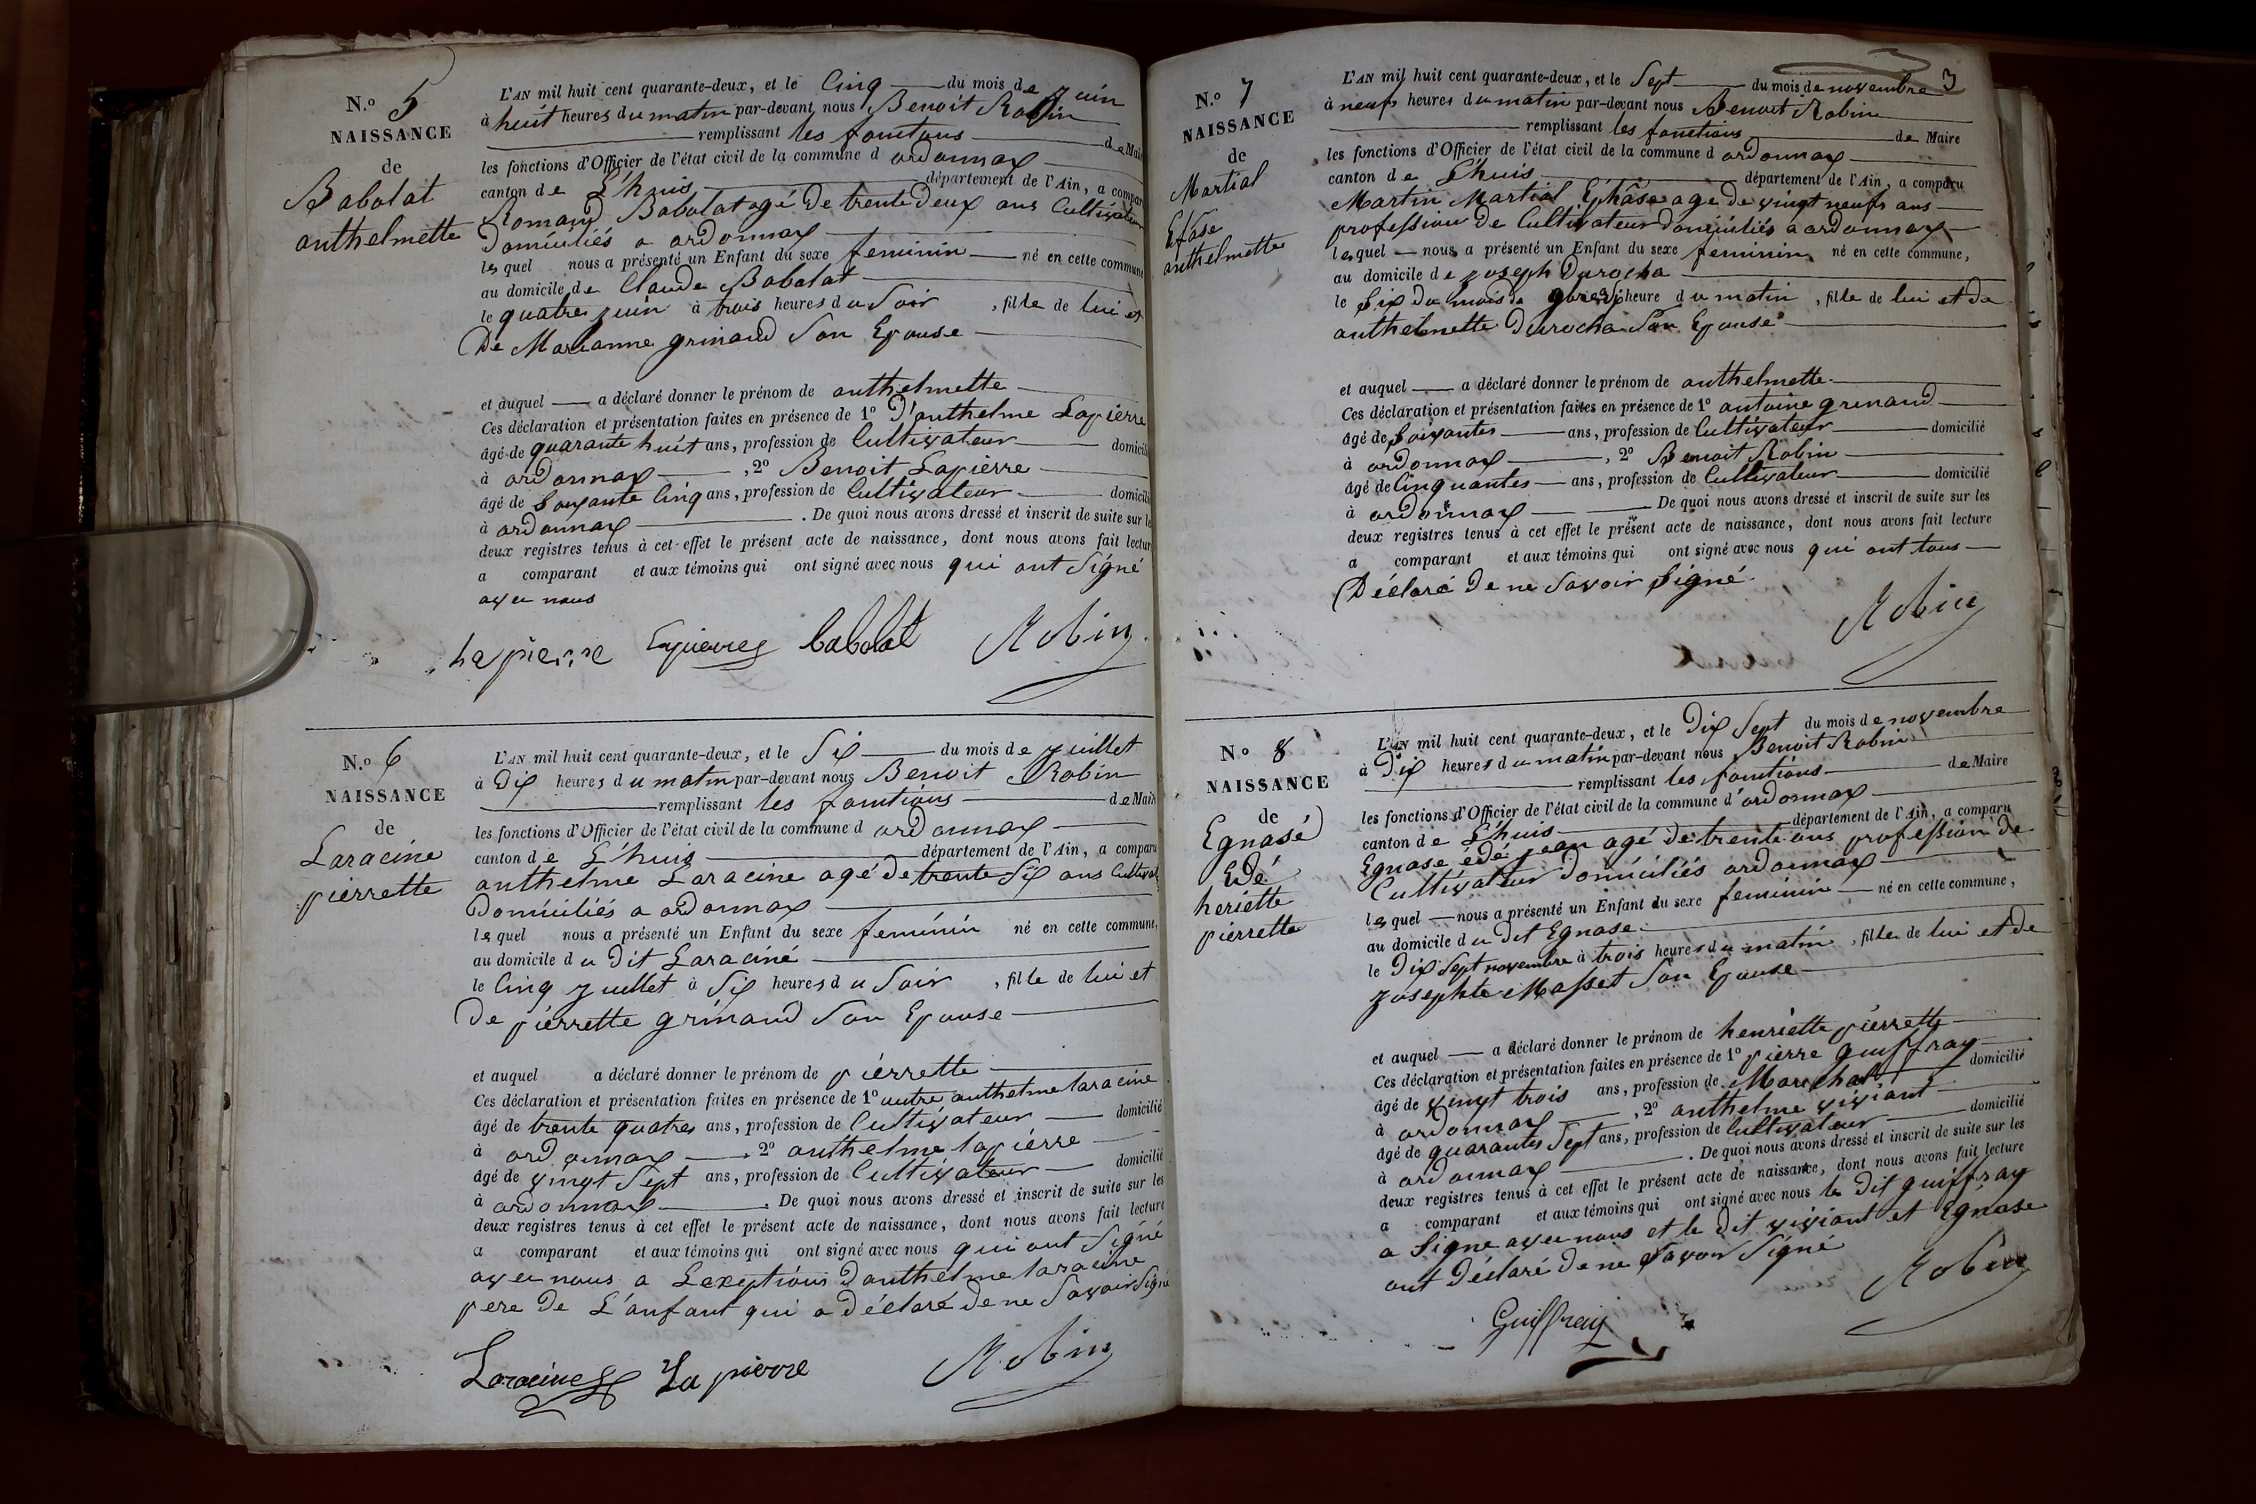 N.º 5
NAISSANCE
de
Babolat
anthelmette
L'AN mil huit cent quarante-deux, et le Cinq du mois de Juin
à huit heures du matin par-devant nous Benoit Robin
remplissant les fonctions de Mair
les fonctions d'Officier de l'état civil de la commune d ordonnax
canton de L'huis département de l'Ain, a compar
Romand Babolat agé de trente deux ans Cultivateur
Domiciliés a ordonnax
lesquel nous a présenté un Enfant du sexe feminin né en cette commune
au domicile de Claude Babolat
le quatres juin à trois heures du Soir , fille de lui et
De Marianne grinand Son Epouse
et auquel a déclaré donner le prénom de anthelmette
Ces déclaration et présentation faites en présence de 1º D'anthelme Lapierre
âgé de quarante huit ans, profession de Cultivateur domicili
à ordonnax , 2º Benoit Lapierre
âgé de Soixante Cinq ans, profession de Cultivateur domicili
à ordonnax . De quoi nous avons dressé et inscrit de suite sur le
deux registres tenus à cet effet le présent acte de naissance, dont nous avons fait lectur
a comparant et aux témoins qui ont signé avec nous qui ont Signé
avec nous
Lapierre Babolat Robin
N.º 6
NAISSANCE
de
Laracine
pierrette
L'AN mil huit cent quarante-deux, et le Six du mois de Juillet
à Dix heures du matin par-devant nous Benoit Robin
remplissant les fonctions de Mair
les fonctions d'Officier de l'état civil de la commune d ordonnax
canton de L'huis département de l'Ain, a comparu
anthelme Laracine agé de trente Six ans Cultivat
Domiciliés a ordonnax
lequel nous a présenté un Enfant du sexe feminin né en cette commune,
au domicile du Dit Laraciné
le Cinq juillet à Six heures du Soir , fille de lui et
De pierrette grinand Son Epouse
et auquel a déclaré donner le prénom de pierrette
Ces déclaration et présentation faites en présence de 1º autre anthelme laracine
âgé de trente quatres ans, profession de Cultivateur domicilié
à ordonnax , 2º anthelme lapierre
âgé de vingt Sept ans, profession de Cultivateur domicilié
à ordonnax . De quoi nous avons dressé et inscrit de suite sur les
deux registres tenus à cet effet le présent acte de naissance, dont nous avons fait lecture
a comparant et aux témoins qui ont signé avec nous qui ont Signé
avec nous a Lexeptions Danthelme laracine
pere De L'anfant qui a déclaré de ne Savoir Signé
Laracine Lapierre Robin
3
N.º 7
NAISSANCE
de
Martial
Efase
anthelmette
L'AN mil huit cent quarante-deux, et le Sept du mois de novembre
à neufs heures du matin par-devant nous Benoit Robin
remplissant les fonctions de Maire
les fonctions d'Officier de l'état civil de la commune d ordonnax
canton de L'huis département de l'Ain, a comparu
Martin Martial Ephâse age de vingt neufs ans
profession de Cultivateur Domiciliés a ordonnax
lesquel nous a présenté un Enfant du sexe feminin né en cette commune,
au domicile de joseph Durocha
le Six du mois de heure du matin , fille de lui et de
anthelmette Durocha Son Epouse
et auquel a déclaré donner le prénom de anthelmette
Ces déclaration et présentation faites en présence de 1º antoine grinand
âgé de Soixantes ans, profession de Cultivateur domicilié
à ordonnax , 2º Benoit Robin
âgé de Cinquantes ans, profession de Cultivateur domicilié
à ordonnax De quoi nous avons dressé et inscrit de suite sur les
deux registres tenus à cet effet le présent acte de naissance, dont nous avons fait lecture
a comparant et aux témoins qui ont signé avec nous qui ont tous
Déclaré De ne Savoir Signé
Robin
Nº 8
NAISSANCE
de
Egnasé
Edé
heriette
pierrette
L'AN mil huit cent quarante-deux, et le Dix Sept du mois de novembre
à Dix heures du matin par-devant nous Benoit Robin
remplissant les fonctions de Maire
les fonctions d'Officier de l'état civil de la commune d'ordonnax
canton de L'huis département de l'Ain, a comparu
Egnase édé jean agé de trente ans profession de
Cultivateur Domiciliés ordonnax
lesquel nous a présenté un Enfant du sexe feminin né en cette commune,
au domicile du Dit Egnase
le Dix Sept novembre à trois heures du matin , fille de lui et de
josephte Masset Son Epouse
et auquel a déclaré donner le prénom de henriette pierrette
Ces déclaration et présentation faites en présence de 1º pierre guiffray
âgé de vingt trois ans, profession de Marechal domicilié
à ordonnax , 2º anthelme viviant
âgé de quarantes Sept ans, profession de Cultivateur domicilié
à ordonnax . De quoi nous avons dressé et inscrit de suite sur les
deux registres tenus à cet effet le présent acte de naissance, dont nous avons fait lecture
a comparant et aux témoins qui ont signé avec nous le Dit guiffray
a Signe avec nous et le Dit viviant et Egnase
ont Déclaré De ne Savoir Signé
Guiffray Robin